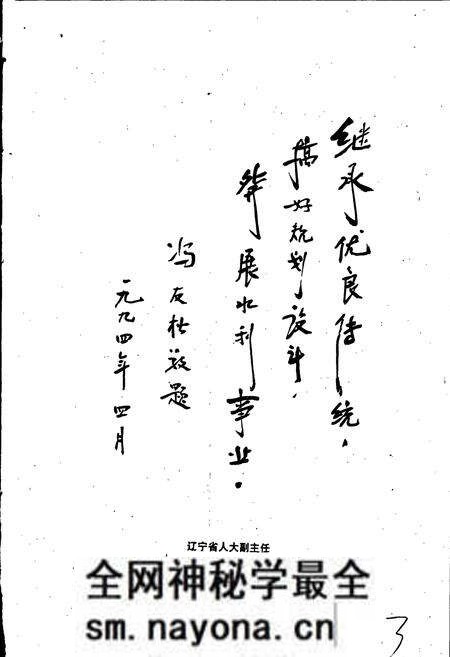 继承优良传统，
搞好规划设计，
发展水利事业。
冯友松敬题
一九九四年四月
辽宁省人大副主任
全网神秘学最全
sm.nayona.cn
3